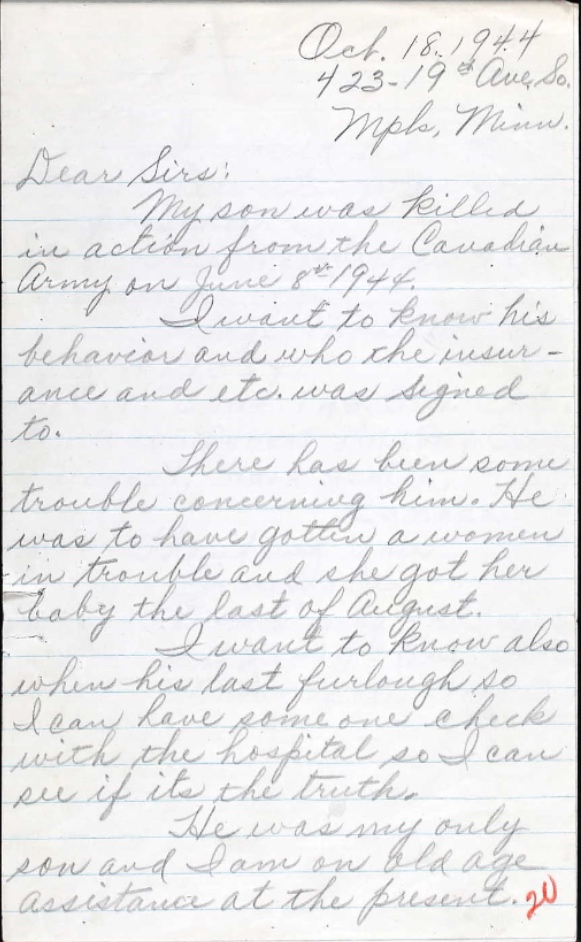 Oct. 18. 1944
423-19th Ave. So.
Mpls, Minn.
Dear Sirs:
My son was killed
in action from the Canadian
Army on June 8th 1944.
I want to know his
behavior and who the insur-
ance and etc. was signed
to.
There has been some
trouble concerning him. He
was to have gotten a women
in trouble and she got her
baby the last of August.
I want to know also
when his last furlough so
I can have some one check
with the hospital so I can
see if its the truth.
He was my only
son and I am on old age
assistance at the present. 20